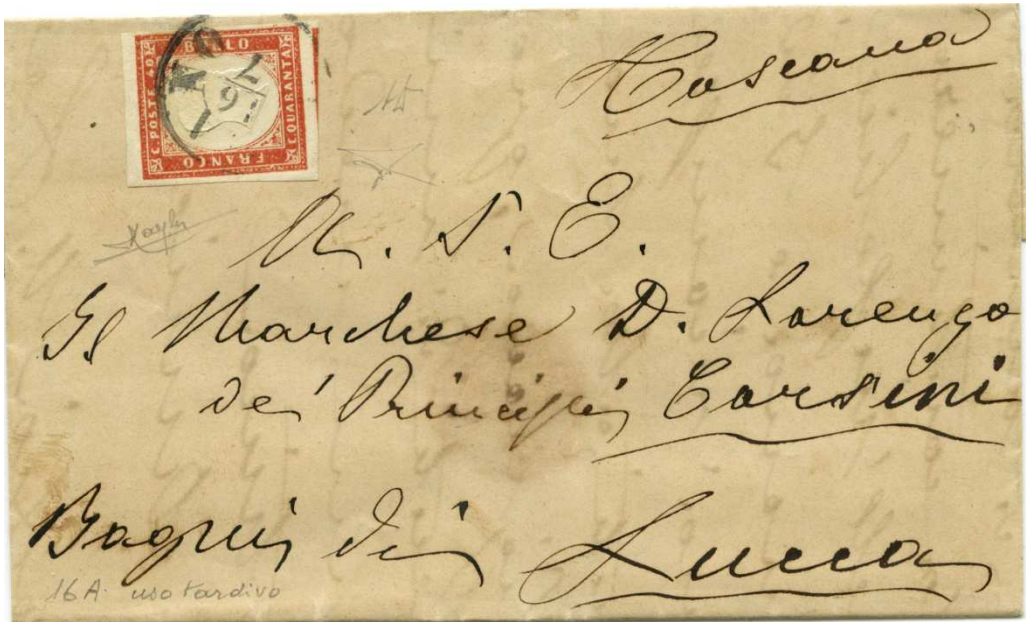 BOLLO
C. POSTE 40
C. QUARANTA
FRANCO
Toscana
A. S. E.
Il Marchese D. Lorenzo
de' Principi Corsini
Bagni di Lucca
16 A. uso tardivo